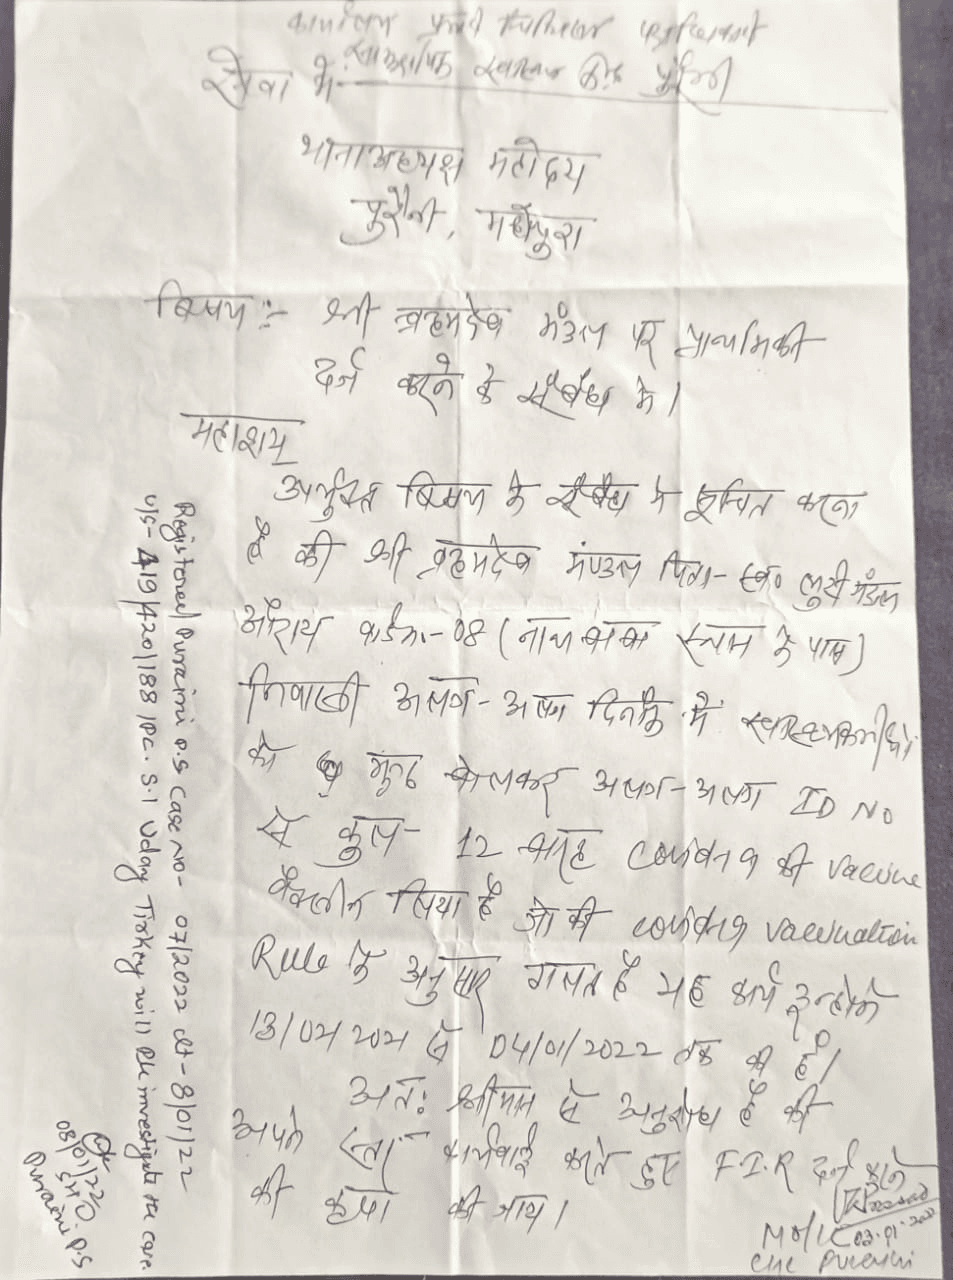 कार्यालय प्रभारी चिकित्सा पदाधिकारी
सामुदायिक स्वास्थ्य केन्द्र पुरैनी
सेवा में
थानाअध्यक्ष महोदय
पुरैनी, मधेपुरा
बिषय :- श्री ब्रह्मदेव मंडल पर प्राथमिकी
दर्ज करने के संबंध में।
महाशय
उपर्युक्त बिषय के संबंध में सूचित करना
है की श्री ब्रह्मदेव मण्डल पिता- स्व० मंडल
औराय वार्ड नं.-08 (स्थान के पास)
निवासी अलग-अलग दिनांक में
को झुठ बोलकर अलग-अलग ID NO
से कुल- 12 बारह की vaccine
वैक्सीन लिया है जो की vaccination
Rule के अनुसार गलत है यह कार्य इन्होने
13/02/2021 से 04/01/2022 तक की है।
अतः श्रीमान से अनुरोध है की
अपने स्तर कार्यवाई करते हुए F.I.R दर्ज करने
की कृपा की जाय।
MO/IC
CHC Puraini
Registered Puraini P.S case no- 07/2022 dt-8/01/22
u/s- 419/420/188 IPC. S.I Uday Tirkey will Pl investigate the case.
08/01/22
SHO
Puraini P.S